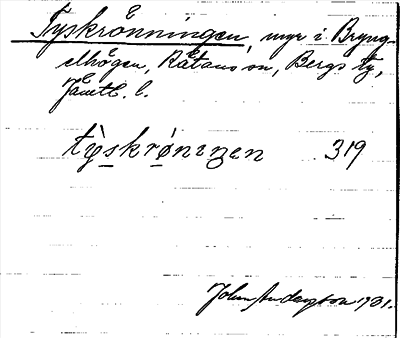 Tyskrönningen, myr i Bryng-
elhögen, Rätans sn, Bergs tg,
Jämtl. l.
tỳskrøniŋen 319
John Andersson 1931.